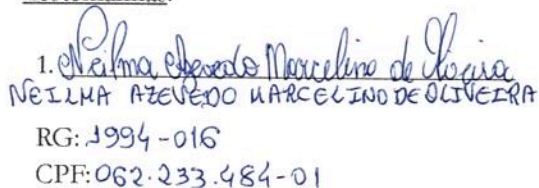 1. Neilma Azevedo Marcelino de Oliveira
NEILMA AZEVEDO MARCELINO DE OLIVEIRA
RG: 1994-016
CPF: 062.233.484-01